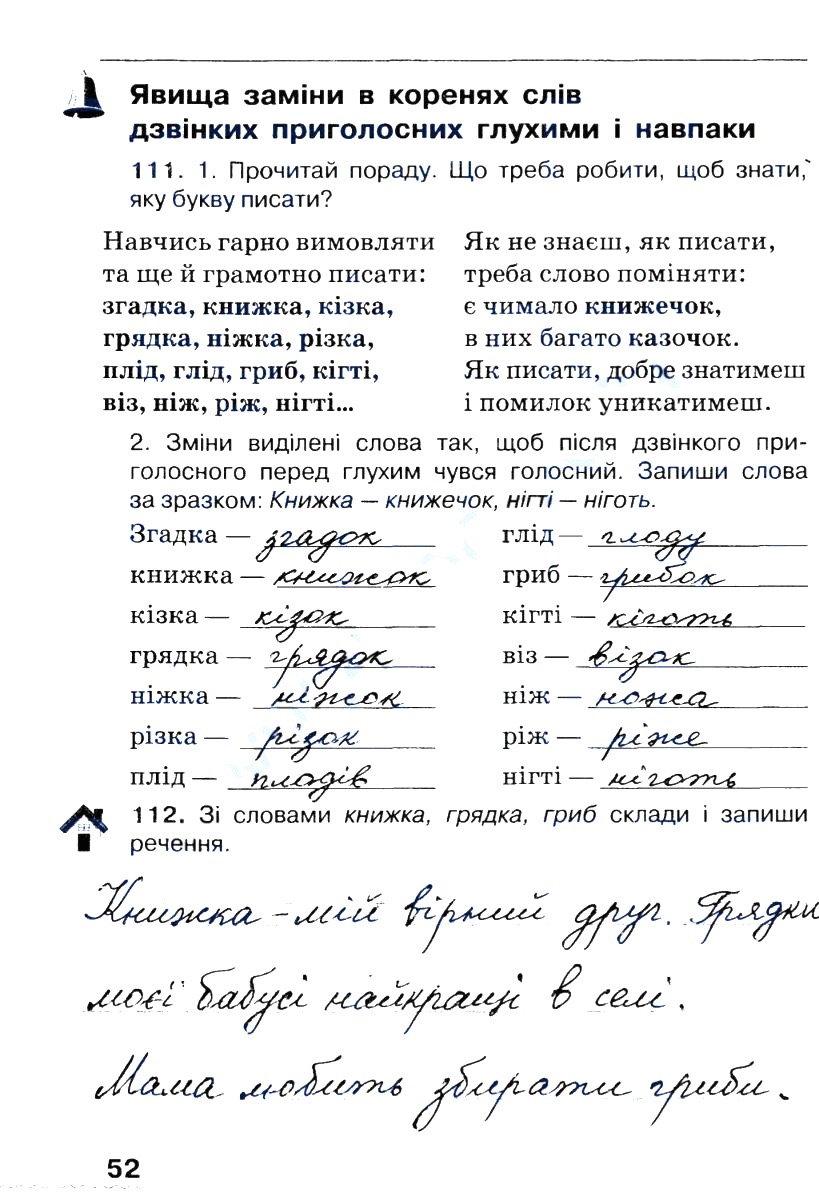 Явища заміни в коренях слів
дзвінких приголосних глухими і навпаки
111. 1. Прочитай пораду. Що треба робити, щоб знати,
яку букву писати?
Навчись гарно вимовляти
та ще й грамотно писати:
згадка, книжка, кізка,
грядка, ніжка, різка,
плід, глід, гриб, кігті,
віз, ніж, ріж, нігті...
Як не знаєш, як писати,
треба слово поміняти:
є чимало книжечок,
в них багато казочок.
Як писати, добре знатимеш
і помилок уникатимеш.
2. Зміни виділені слова так, щоб після дзвінкого при-
голосного перед глухим чувся голосний. Запиши слова
за зразком: Книжка – книжечок, нігті – ніготь.
Згадка — згадок
книжка — книжок
кізка — кізок
грядка — грядок
ніжка — ніжок
різка — різок
плід — плодів
глід — глоду
гриб — грибок
кігті — кіготь
віз — візок
ніж — ножа
ріж — ріже
нігті — ніготь
112. Зі словами книжка, грядка, гриб склади і запиши
речення.
Книжка - мій вірний друг. Грядки
моєї бабусі найкращі в селі.
Мама любить збирати гриби.
52